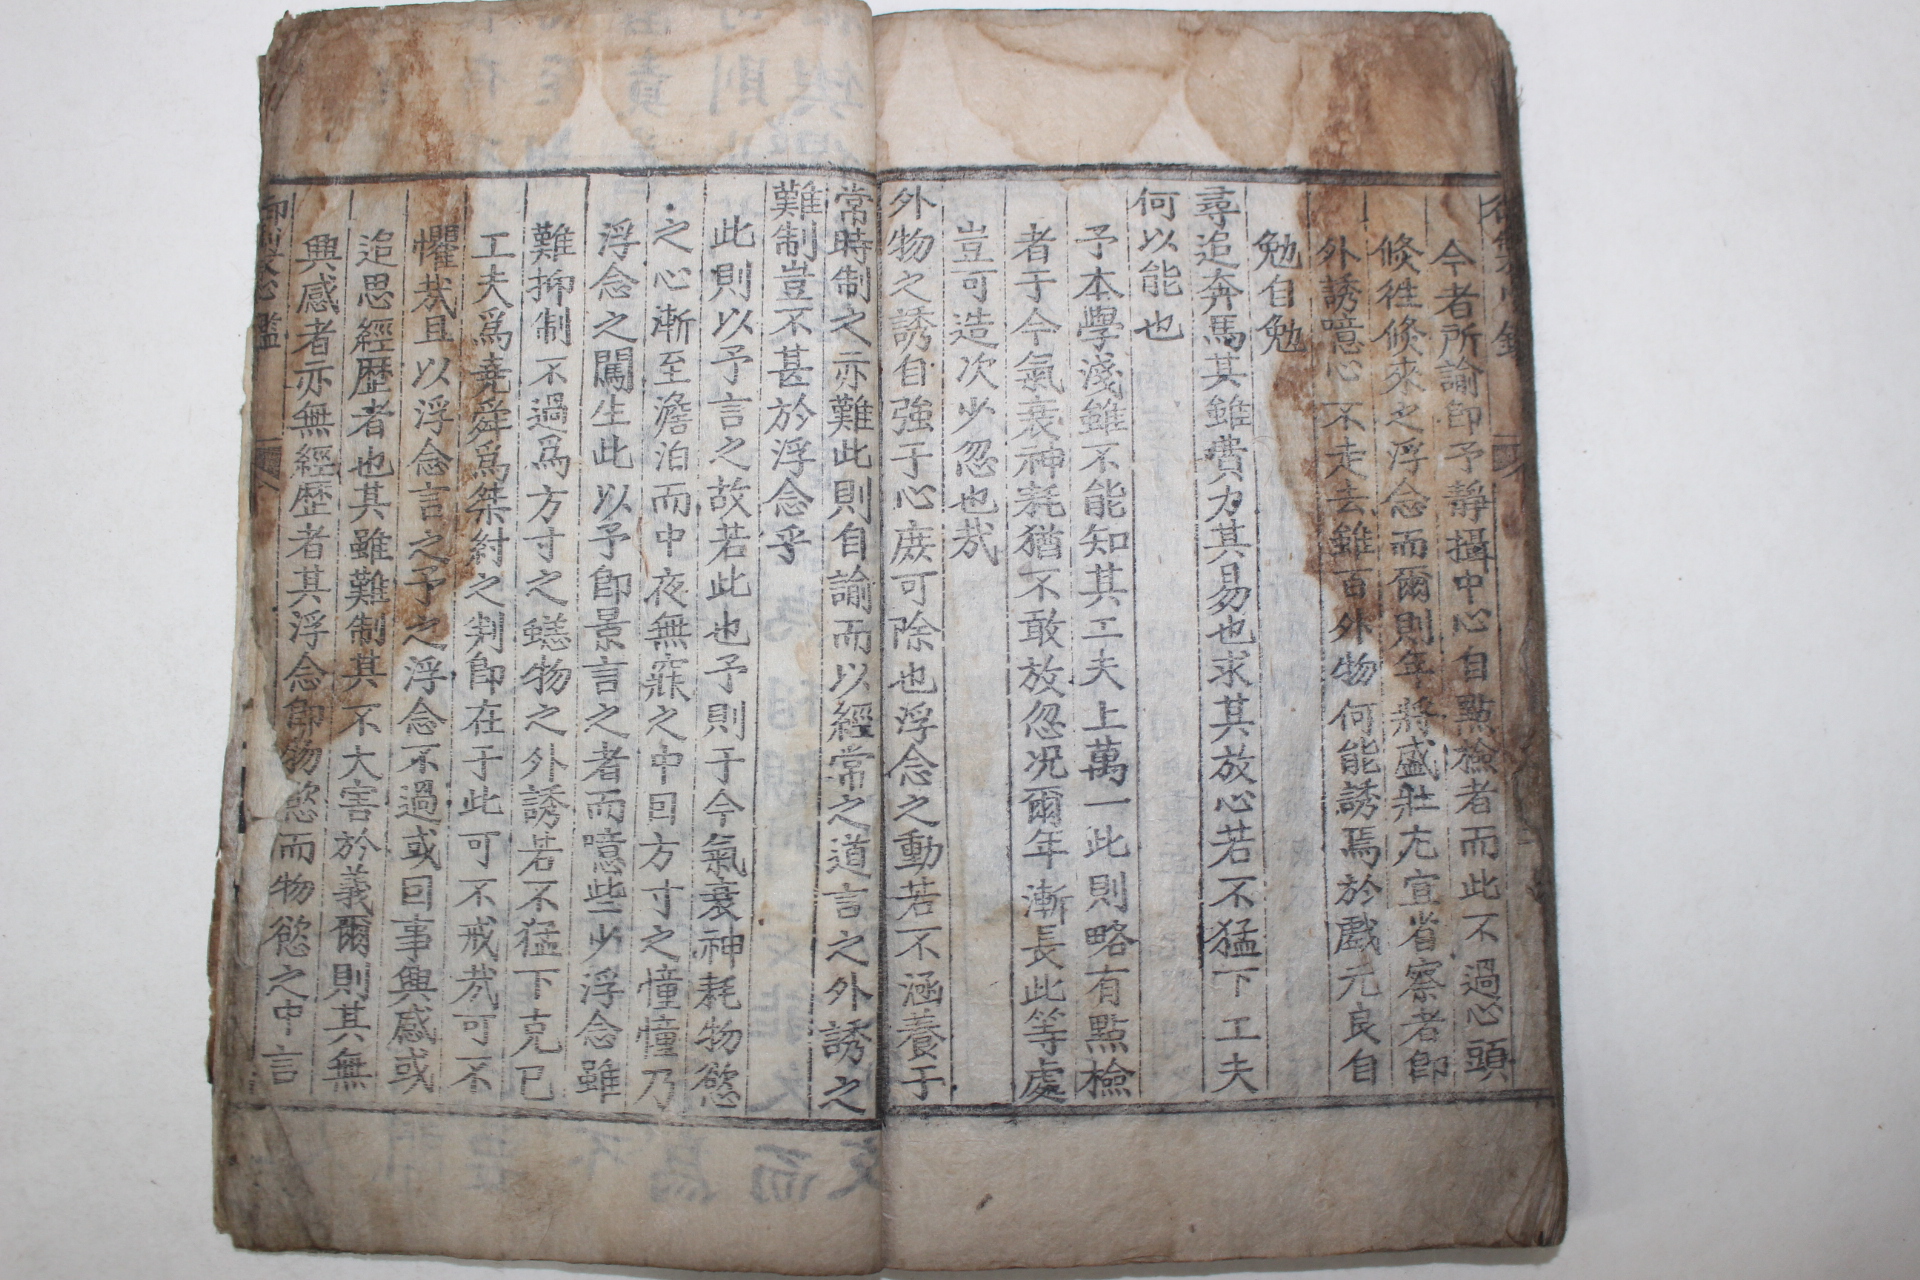 今者所諭卽予靜攝中心自點檢者而此不過心頭
倐徃倐來之浮念而爾則年將盛壯尤宜省察者卽
外誘噫心不走去雖百外物何能誘焉於戱元良自
勉自勉
尋追奔馬其雖費力其易也求其放心若不猛下工夫
何以能也
予本學淺雖不能知其工夫上萬一此則略有點檢
者于今氣衰神耗猶不敢放忽况爾年漸長此等處
豈可造次少忽也㦲
外物之誘自強于心庶可除也浮念之動若不涵養于
常時制之亦難此則自諭而以經常之道言之外誘之
難制豈不甚於浮念乎
此則以予言之故若此也予則于今氣衰神耗物慾
之心漸至澹泊而中夜無寐之中回方寸之憧憧乃
浮念之闖生此以予卽景言之者而噫些少浮念雖
難抑制不過爲方寸之蟋物之外誘若不猛下克己
工夫爲堯舜爲桀紂之判卽在于此可不戒㦲可不
懼㦲且以浮念言之予之浮念不過或因事興感或
追思經歷者也其雖難制其不大害於義爾則其無
興感者亦無經歷者其浮念卽物慾而物慾之中言
御製心鑑